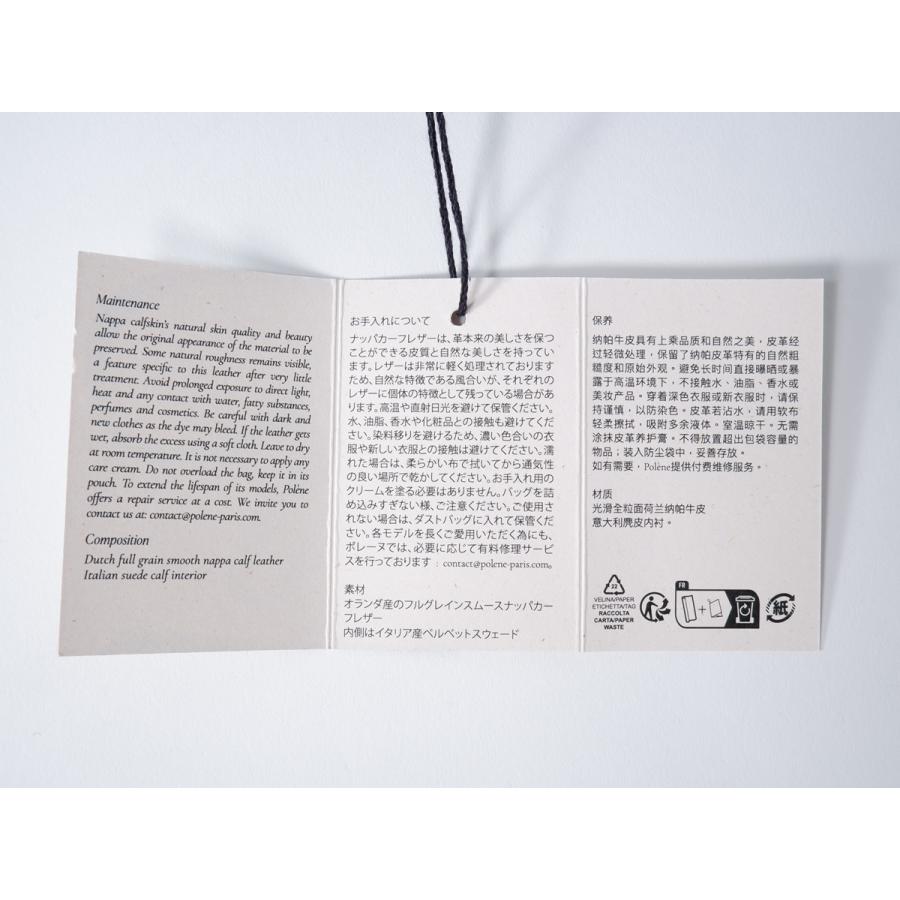 Maintenance
Nappa calfskin's natural skin quality and beauty
allow the original appearance of the material to be
preserved. Some natural roughness remains visible,
a feature specific to this leather after very little
treatment. Avoid prolonged exposure to direct light,
heat and any contact with water, fatty substances,
perfumes and cosmetics. Be careful with dark and
new clothes as the dye may bleed. If the leather gets
wet, absorb the excess using a soft cloth. Leave to dry
at room temperature. It is not necessary to apply any
care cream. Do not overload the bag, keep it in its
pouch. To extend the lifespan of its models, Polène
offers a repair service at a cost. We invite you to
contact us at: contact@polene-paris.com.
Composition
Dutch full grain smooth nappa calf leather
Italian suede calf interior
お手入れについて
ナッパカーフレザーは、革本来の美しさを保つ
ことができる皮質と自然な美しさを持ってい
ます。レザーは非常に軽く処理されております
ため、自然な特徴である風合いが、それぞれの
レザーに個体の特徴として残っている場合があ
ります。高温や直射日光を避けて保管ください。
水、油脂、香水や化粧品との接触も避けてくだ
さい。染料移りを避けるため、濃い色合いの衣
服や新しい衣服との接触は避けてください。濡
れた場合は、柔らかい布で拭いてから通気性
の良い場所で乾かしてください。お手入れ用の
クリームを塗る必要はありません。バッグを詰
め込みすぎない様、ご注意ください。ご使用さ
れない場合は、ダストバッグに入れて保管くだ
さい。各モデルを長くご愛用いただく為にも、
ポレーヌでは、必要に応じて有料修理サービ
スを行っております : contact@polene-paris.com。
素材
オランダ産のフルグレインスムースナッパカー
フレザー
内側はイタリア産ベルベットスウェード
保养
纳帕牛皮具有上乘品质和自然之美，皮革经
过轻微处理，保留了纳帕皮革特有的自然粗
糙度和原始外观。避免长时间直接曝晒或暴
露于高温环境下，不接触水、油脂、香水或
美妆产品。穿着深色衣服或新衣服时，请保
持谨慎，以防染色。皮革若沾水，请用软布
轻柔擦拭，吸附多余液体。室温晾干。无需
涂抹皮革养护膏。不得放置超出包袋容量的
物品；装入防尘袋中，妥善存放。
如有需要，Polène提供付费维修服务。
材质
光滑全粒面荷兰纳帕牛皮
意大利麂皮内衬。
22
VELINA/PAPER
ETICHETTA/TAG
RACCOLTA
CARTA/PAPER
WASTE
FR
+
紙